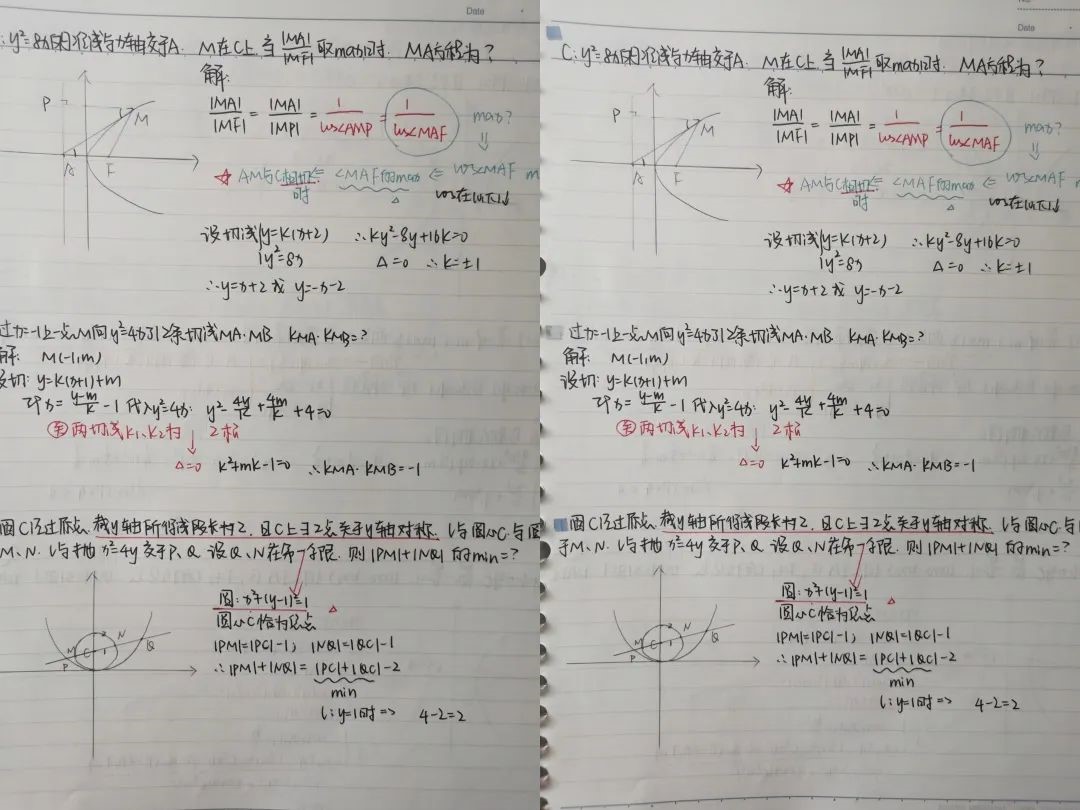 Date
: y²=8x的准线与x轴交于A. M在C上, 当|MA|/|MF|取max时. MA方程为?
解:
P
M
A
F
|MA|/|MF| = |MA|/|MP| = 1/cos∠AMP = 1/cos∠MAF
max?
⇓
☆ AM与C相切时 ⇐ ∠MAF的max ⇐ cos∠MAF m
△
cos在(0,π)↓
设切线{y=k(x+2)
y²=8x
∴ky²-8y+16k=0
△=0 ∴k=±1
∴y=x+2或y=-x-2
过x=-1上一点M向y²=4x引2条切线MA·MB KMA·KMB=?
解: M(-1,m)
设切: y=k(x+1)+m
即x=(y-m)/k -1 代入y²=4x: y²-4y/k+4m/k+4=0
两切线k1、k2为 2根
△=0 k²+mk-1=0 ∴KMA·KMB=-1
圆C过原点, 截y轴所得线段长为2, 且C上∃2点关于y轴对称. l与圆心C与圆
M、N. l与抛x²=4y交于P、Q 设Q、N在第一象限. 则|PM|+|NQ|的min=?
圆: x²+(y-1)²=1
△
圆心C恰为焦点
|PM|=|PC|-1; |NQ|=|QC|-1
∴|PM|+|NQ|=|PC|+|QC|-2
min
l:y=1时=> 4-2=2
2
M
C
1
N
P
Q
Date
C: y²=8x的准线与x轴交于A. M在C上, 当|MA|/|MF|取max时. MA方程为?
解:
P
M
A
F
|MA|/|MF| = |MA|/|MP| = 1/cos∠AMP = 1/cos∠MAF
max?
⇓
☆ AM与C相切时 ⇐ ∠MAF的max ⇐ cos∠MAF
△
cos在(0,π)↓
设切线{y=k(x+2)
y²=8x
∴ky²-8y+16k=0
△=0 ∴k=±1
∴y=x+2或y=-x-2
过x=-1上一点M向y²=4x引2条切线MA·MB KMA·KMB=?
解: M(-1,m)
设切: y=k(x+1)+m
即x=(y-m)/k -1 代入y²=4x: y²-4y/k+4m/k+4=0
两切线k1、k2为 2根
△=0 k²+mk-1=0 ∴KMA·KMB=-1
圆C过原点, 截y轴所得线段长为2, 且C上∃2点关于y轴对称. l与圆心C与圆
于M、N. l与抛x²=4y交于P、Q 设Q、N在第一象限. 则|PM|+|NQ|的min=?
圆: x²+(y-1)²=1
△
圆心C恰为焦点
|PM|=|PC|-1; |NQ|=|QC|-1
∴|PM|+|NQ|=|PC|+|QC|-2
min
l:y=1时=> 4-2=2
2
M
C
1
N
P
Q